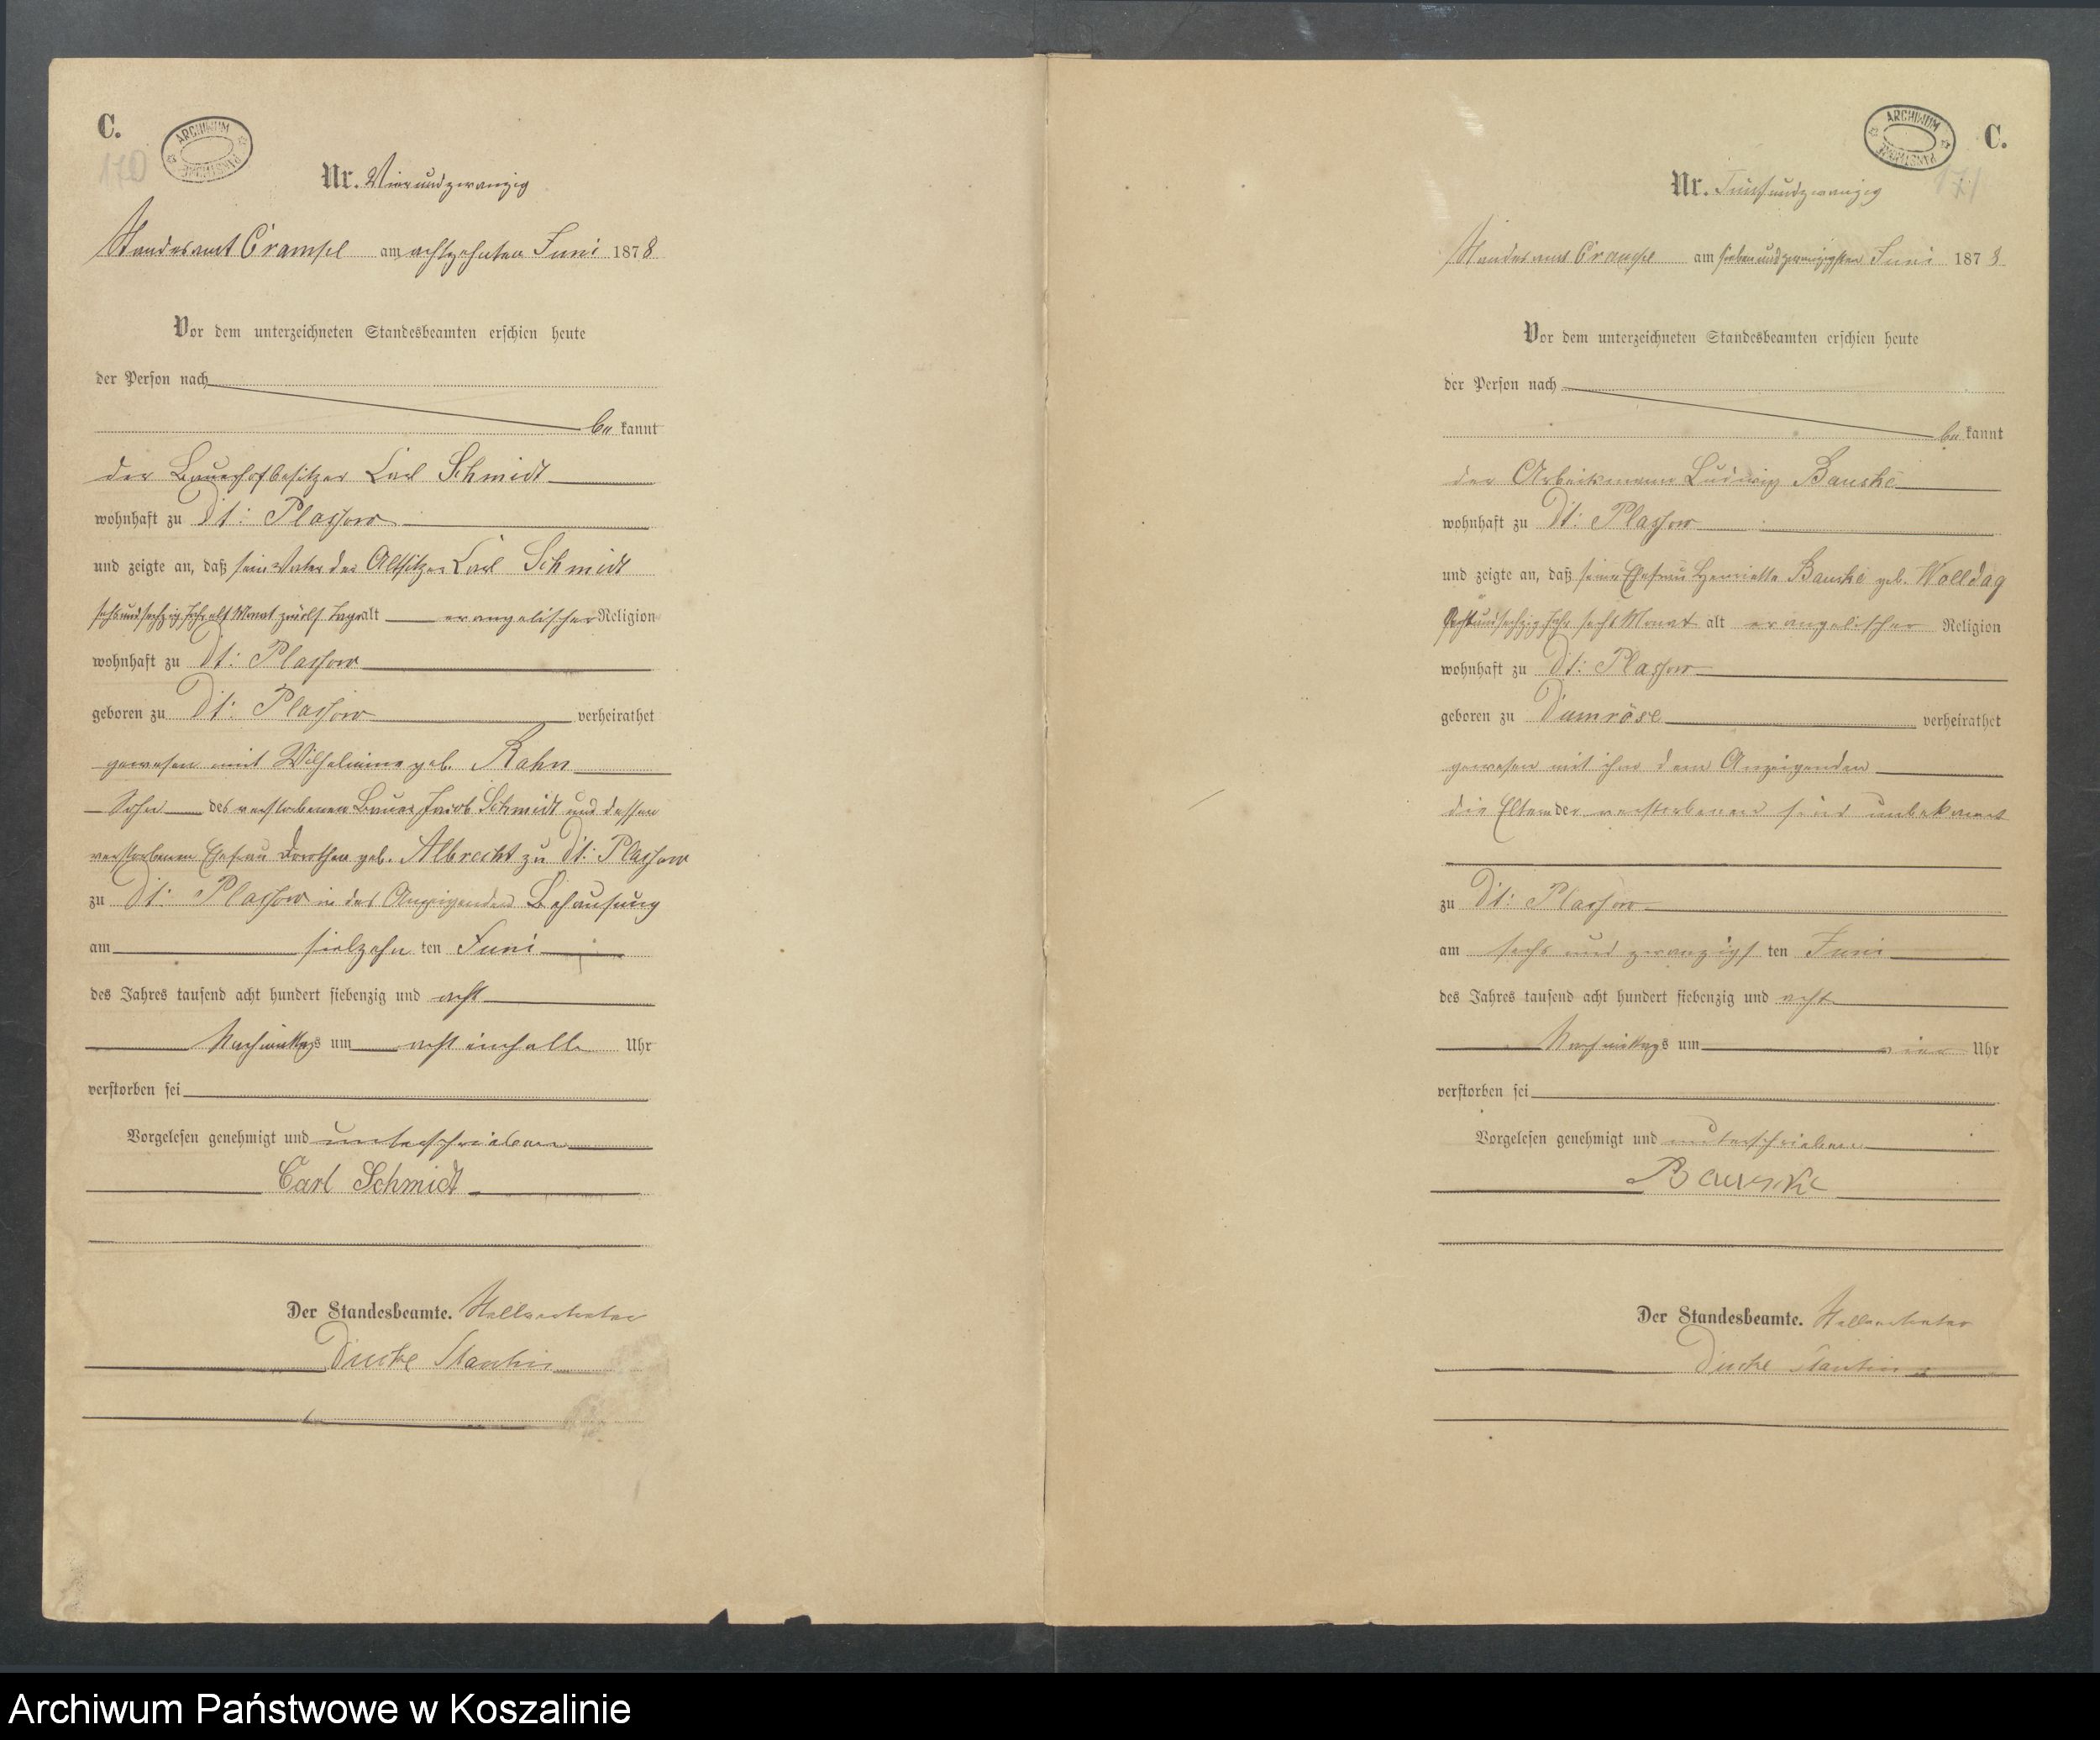 C.
ARCHIWUM PAŃSTWOWE
170
Nr. Vierundzwanzig
Standesamt Crampel am achtzehnten Juni 1878
Vor dem unterzeichneten Standesbeamten erschien heute
der Person nach
be kannt
der Bauerhofbesitzer Carl Schmidt
wohnhaft zu Dt: Plassow
und zeigte an, daß sein Vater der Altsitzer Carl Schmidt
sechsundsechzig Jahr elf Monat zwölf Tage alt evangelischer Religion
wohnhaft zu Dt: Plassow
geboren zu Dt: Plassow verheirathet
gewesen mit Wilhelmine geb. Rahn
Sohn des verstorbenen Bauer Jacob Schmidt und dessen
verstorbenen Ehefrau Dorothea geb. Albrecht zu Dt: Plassow
zu Dt: Plassow in des Anzeigenden Behausung
am siebzehn ten Juni
des Jahres tausend acht hundert siebenzig und acht
Nachmittags um acht einhalb Uhr
verstorben sei
Vorgelesen genehmigt und unterschrieben
Carl Schmidt
Der Standesbeamte. Stellvertreter
C.
ARCHIWUM PAŃSTWOWE
171
Nr. Fünfundzwanzig
Standesamt Crampel am siebenundzwanzigsten Juni 1878
Vor dem unterzeichneten Standesbeamten erschien heute
der Person nach
be kannt
der Arbeitsmann Ludwig Bauske
wohnhaft zu Dt: Plassow
und zeigte an, daß seine Ehefrau Henriette Bauske geb. Walldag
Jahr sechs Monat alt evangelischer Religion
wohnhaft zu Dt: Plassow
geboren zu Damröse verheirathet
gewesen mit ihm dem Anzeigenden
die Eltern der verstorbenen sind unbekannt
zu Dt: Plassow
am sechs und zwanzigs ten Juni
des Jahres tausend acht hundert siebenzig und acht
Nachmittags um vier Uhr
verstorben sei
Vorgelesen genehmigt und unterschrieben
Bauske
Der Standesbeamte. Stellvertreter
Archiwum Państwowe w Koszalinie